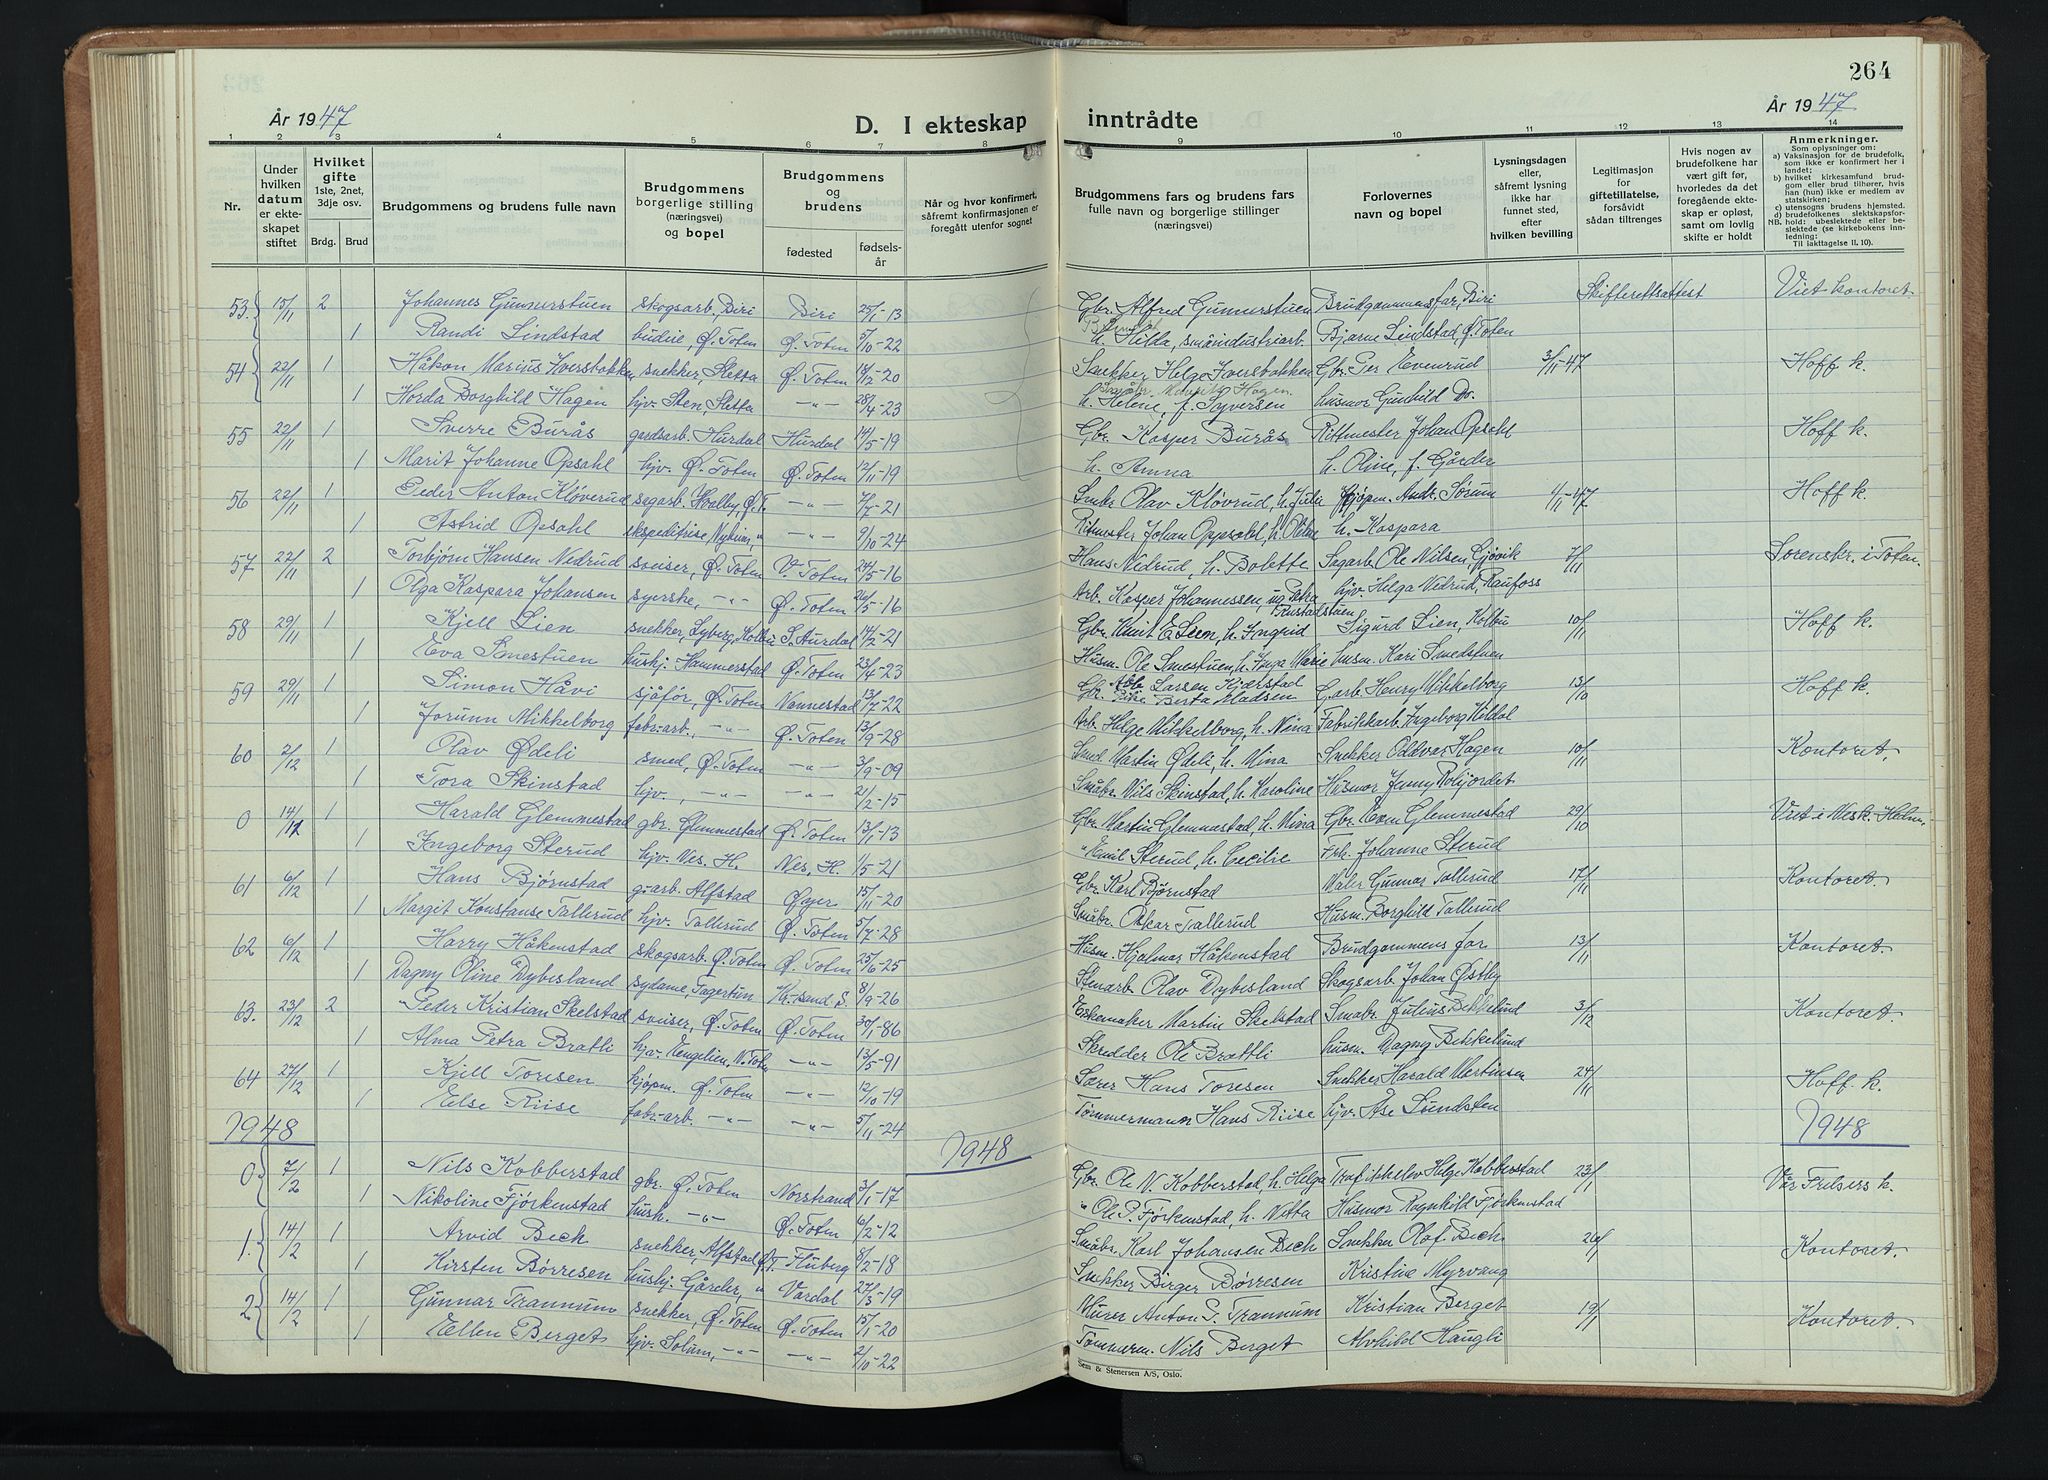 264
År 1947
D. I ekteskap inntrådte
År 1947
1 2 3 4 5 6 7 8 9 10 11 12 13 14
Nr.
Under hvilken datum er ekteskapet stiftet
Hvilket gifte 1ste, 2net, 3dje osv.
Brdg. Brud
Brudgommens og brudens fulle navn
Brudgommens borgerlige stilling (næringsvei) og bopel
Brudgommens og brudens
fødested
fødselsår
Når og hvor konfirmert, såfremt konfirmasjonen er foregått utenfor sognet
Brudgommens fars og brudens fars fulle navn og borgerlige stillinger (næringsvei)
Forlovernes navn og bopel
Lysningsdagen eller, såfremt lysning ikke har funnet sted, efter hvilken bevilling
Legitimasjon for giftetillatelse, forsåvidt sådan tiltrenges
Hvis nogen av brudefolkene har vært gift før, hvorledes da det foregående ekteskap er opløst, samt om lovlig skifte er holdt
Anmerkninger.
Som oplysninger om:
a) Vaksinasjon for de brudefolk, som ikke er konfirmert her i landet;
b) hvilket kirkesamfund brudgom eller brud tilhører, hvis han (hun) ikke er medlem av statskirken;
c) utensogns brudens hjemsted.
d) brudefolkenes slektskapsforhold: ubeslektede eller beslektede (se kirkebokens innledning:
NB.
Til iakttagelse II. 10).
53 15/11 2 Johannes Gunnerstuen skogsarb. Biri Biri 25/1-13 Gbr. Alfred Gunnerstuen Brudgommens far, Biri Skifterettsattest Viet kontoret.
1 Randi Lindstad budeie, Ø. Toten Ø. Toten 5/10-22 h. Hilda, småindustriarb. Bjarne Lindstad Ø. Toten
54 22/11 1 Håkon Marius Iversbakken snekker, Sletta Ø. Toten 14/12-20 Snekker Helge Iversbakken Gbr. Per Evenrud 3/11-47 Hoff k.
1 Horda Borghild Hagen hjv. Sten, Sletta -"- 28/4-23 h. Helene, f. Syversen husmor Gunhild Do.
55 22/11 1 Sverre Burås gardsarb. Hurdal Hurdal 14/5-19 Gbr. Kasper Burås Rittmester Johan Opsahl Hoff k.
1 Marit Johanne Opsahl hjv. Ø. Toten Ø. Toten 12/11-19 h. Anna h. Oline, f. Gårder
56 22/11 1 Peder Anton Kløverud sagarb. Hvalby, Ø.T. -"- 7/7-21 Smbr Olav Kløvrud, h. Julie Kjøpm. Andr. Sørum 4/11-47 Hoff k.
1 Astrid Opsahl ekspeditrise Nybrun, " -"- 9/10-24 Ritmester Johan Oppsahl, h. Oline h. Kaspara
57 22/11 2 Torbjørn Hansen Nedrud sveiser, Ø. Toten V. Toten 24/5-16 Hans Nedrud, h. Bolette Sagarb. Ole Nilsen, Gjøvik 7/11 Sorenskr. i Toten.
1 Olga Kaspara Johansen syerske, -"- Ø. Toten 26/5-16 Arb. Kasper Johannessen, hjv. Helga Nedrud, Raufoss
58 29/11 1 Kjell Lien snekker, Lyberg, Kolbu S. Aurdal 14/2-21 Gbr. Knut E. Leen, h. Ingrid Sigurd Lien, Kolbu 10/11 Hoff k.
1 Eva Smestuen hushj. Hammerstad Ø. Toten 23/4-23 Husm. Ole Smestuen, h. Inga Marie husm. Kari Smedstuen
59 29/11 1 Simon Håvi sjåfør, Ø. Toten Nannestad 13/7-22 Gbr. Larsen Kjærstad Berta Madsen G.arb. Henry Mikkelborg 13/10 Hoff k.
1 Jorunn Mikkelborg fabr.arb. -"- Ø. Toten 13/9-28 Arb. Helge Mikkelborg, h. Nina Fabrikkarb. Ingeborg Kildal
60 2/12 1 Olav Ødeli smed, Ø. Toten -"- 3/9-09 Smed Martin Ødeli, h. Mina Snekker Oddvar Hagen 10/11 Kontoret.
1 Tora Skinstad hjv., -"- -"- 21/2-15 Småbr. Nils Skinstad, h. Karoline Husmor Jenny Rosjordet
0 14/12 1 Harald Glemmestad gbr. Glemmestad Ø. Toten 13/1-13 Gbr. Martin Glemmestad, h. Mina Gbr. Even Glemmestad 29/10 Viet i Nesk. Hedm.
1 Ingeborg Sterud hjv. Nes. H. Nes, H. 1/5-21 " Emil Sterud, h. Cecilie Frk. Johanne Sterud
61 6/12 1 Hans Bjørnstad g.arb. Alfstad Øyer 15/11-20 Gbr. Karl Bjørnstad Maler Gunnar Tallerud 17/11 Kontoret.
1 Margit Konstanse Tallerud hjv. Tallerud Ø. Toten 5/7-28 Småbr. Oskar Tallerud Husm. Borghild Tallerud
62 6/12 1 Harry Håkenstad skogsarb. Ø. Toten Ø. Toten 25/6-25 Husm. Hjalmar Håkenstad Brudgommens far 13/11 Kontoret.
1 Dagny Oline Dybesland sydame, Fagertun Kr.sand S. 8/9-26 Stenarb. Olav Dybesland Skogsarb. Johan Østby
63. 23/12 2 Peder Kristian Skelstad sveiser, Ø. Toten Ø. Toten 30/1-86 Eskemaker Martin Skelstad Småbr. Julius Bekkelund 3/12 Kontoret.
1 Alma Petra Bratli hjv. Engelien, N. Toten -"- 13/5-91 Skredder Ole Brattli husm. Dagny Bekkelund
64 27/12 1 Kjell Toresen kjøpm. Ø. Toten -"- 12/10-19 Lærer Hans Toresen Snekker Harald Martinsen 24/11 Hoff. k.
1 Else Riise fabr.arb. -"- -"- 5/11-24 Tømmermann Hans Riise hjv. Åse Sundsten
1948 1948 1948
0 7/2 1 Nils Kobberstad gbr. Ø. Toten Norstrand 3/1-17 Gbr. Ole N. Kobberstad, h. Helga Trafikkelev Helge Kobberstad 23/1 Vår Frelsers k.
1 Nikoline Fjørkenstad hush. -"- Ø. Toten 6/2-12 " Ole P. Fjørkenstad, h. Nitta Husmor Ragnhild Fjørkenstad
1. 14/2 1 Arvid Bech snekker, Alfstad Ø.T. Fluberg 8/2-18 Småbr. Karl Johansen Bech Snekker Olaf Bech 26/1 Kontoret.
1 Kirsten Børresen hushj. Gårder, " Vardal 27/3-19 Snekker Birger Børresen Kristine Myrvang
2 14/2 1 Gunnar Trannum snekker, Ø. Toten Ø. Toten 15/1-20 Murer Anton P. Trannum Kristian Berget 19/1 Kontoret.
1 Ellen Berget hjv. Solum, -"- -"- 2/10-22 Tømmerm. Nils Berget Alvhild Haugli
Sem & Stenersen A/S, Oslo.